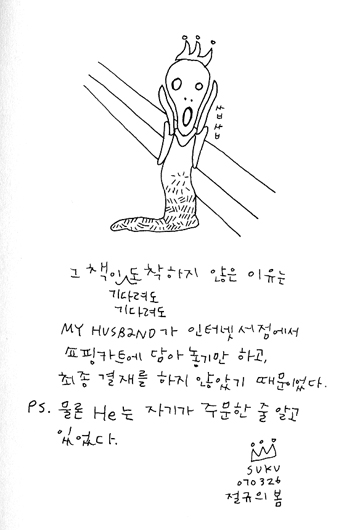 쌉
쌉
그 책이 도착하지 않은 이유는
기다려도
기다려도
MY HUSBAND가 인터넷 서점에서
쇼핑카트에 담아 놓기만 하고,
최종 결재를 하지 않았기 때문이었다.
PS. 물론 He는 자기가 주문한 줄 알고
있었다.
SUKU
070326
절규의 봄